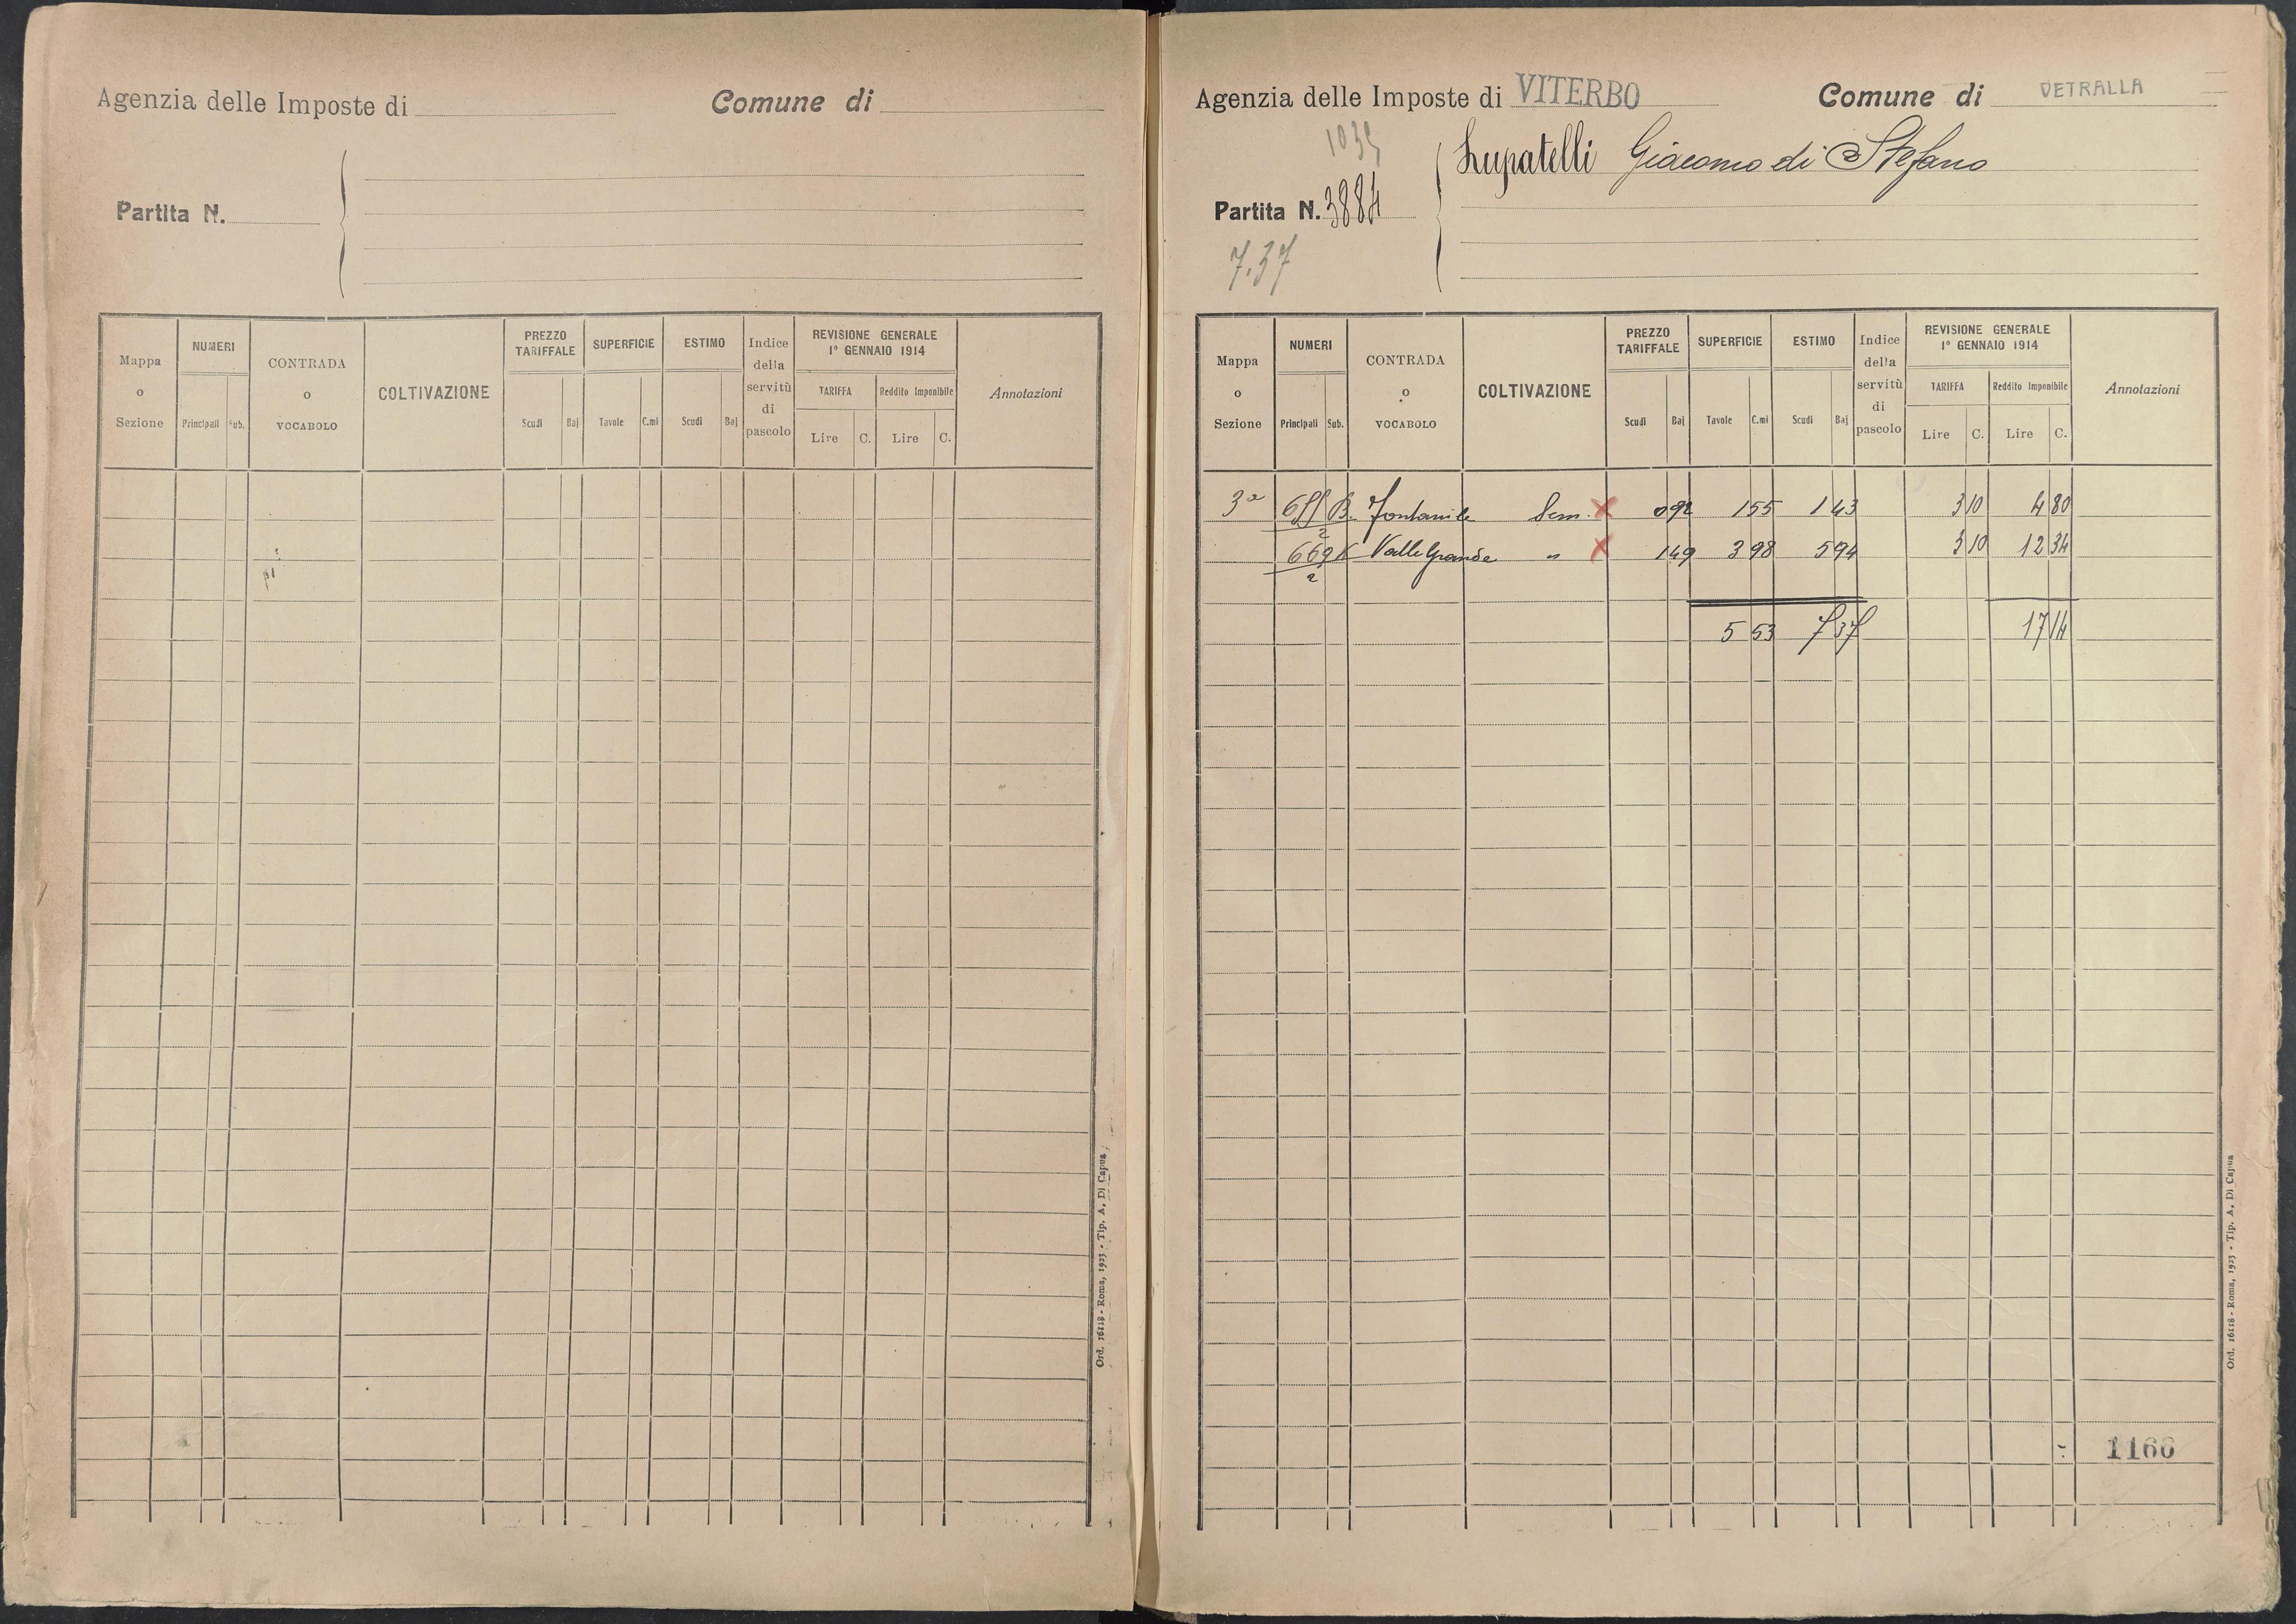 Agenzia delle Imposte di
Comune di
Partita N.
Mappa o Sezione
NUMERI
Principali
Sub.
CONTRADA o VOCABOLO
COLTIVAZIONE
PREZZO TARIFFALE
Scudi
Baj
SUPERFICIE
Tavole
C.mi
ESTIMO
Scudi
Baj
Indice della servitù di pascolo
REVISIONE GENERALE
1° GENNAIO 1914
TARIFFA
Lire
C.
Reddito Imponibile
Lire
C.
Annotazioni
Ord. 16118 - Roma, 1923 - Tip. A. Di Capua
Agenzia delle Imposte di VITERBO
Comune di VETRALLA
1035
Lupatelli Giacomo di Stefano
Partita N. 3884
7.37
Mappa o Sezione
NUMERI
Principali
Sub.
CONTRADA o VOCABOLO
COLTIVAZIONE
PREZZO TARIFFALE
Scudi
Baj
SUPERFICIE
Tavole
C.mi
ESTIMO
Scudi
Baj
Indice della servitù di pascolo
REVISIONE GENERALE
1° GENNAIO 1914
TARIFFA
Lire
C.
Reddito Imponibile
Lire
C.
Annotazioni
3a B Fontanile Sem. X 0 92 1 55 1 43 3 10 4 80
2
669 K Valle Grande " X 1 49 3 98 5 94 3 10 12 34
2
5 53 7 37 17 14
1166
Ord. 16118 - Roma, 1923 - Tip. A. Di Capua